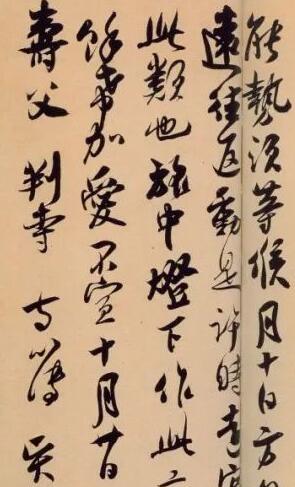 能勢須等候月十日方
遠往返動是許時幸
此類也旅中燈下作此
餘希加愛不宣十月廿日
壽父判寺